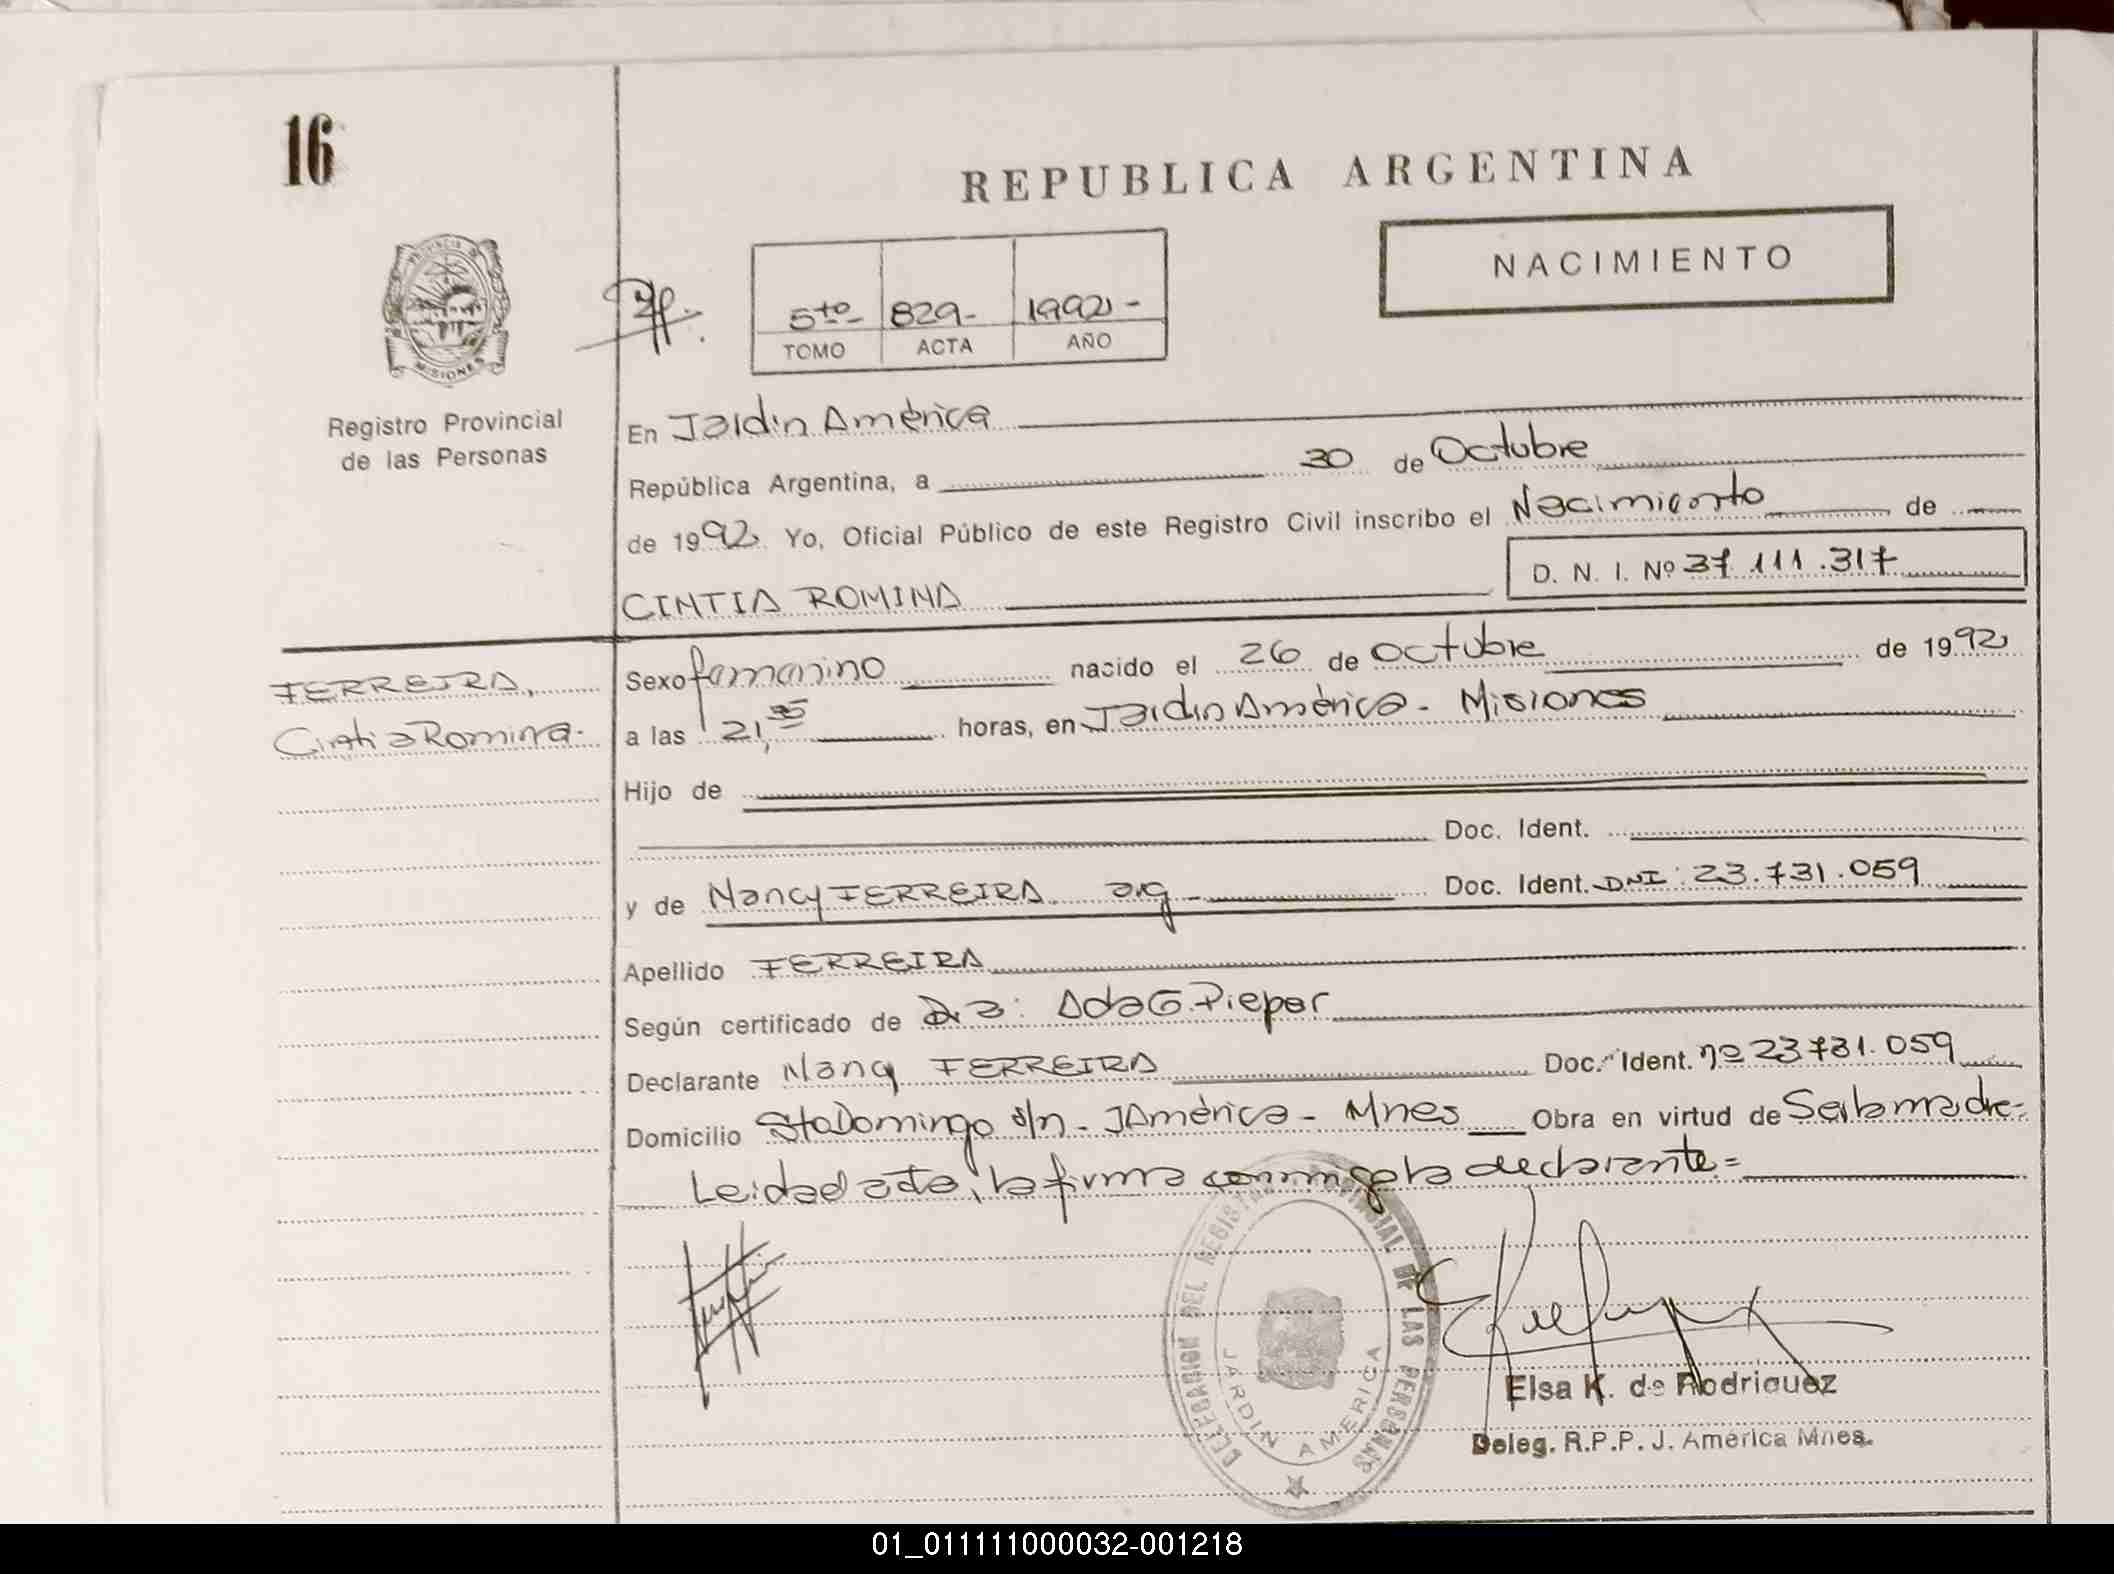 16
REPUBLICA ARGENTINA
NACIMIENTO
5to- 829- 1992-
TOMO ACTA AÑO
PROVINCIA DE
MISIONES
Registro Provincial
de las Personas
En Jardin América
República Argentina, a 30 de Octubre
de 1992 Yo, Oficial Público de este Registro Civil inscribo el Nacimiento de
D. N. I. Nº 37.111.317
CINTIA ROMINA
FERREIRA,
Cintia Romina.
Sexo femenino nacido el 26 de Octubre de 1992
a las 21,35 horas, en Jardin América - Misiones
Hijo de
Doc. Ident.
y de Nancy FERREIRA arg - Doc. Ident. DNI: 23.731.059
Apellido FERREIRA
Según certificado de Dra: Ada G. Pieper
Declarante Nancy FERREIRA Doc. Ident. nº 23731.059
Domicilio Sta Domingo s/n - J América - Mnes Obra en virtud de Ser la madre -
Leida el acta, la firma conmigo la declarante =
DELEGACION DEL REGISTRO PROVINCIAL DE LAS PERSONAS
JARDIN AMERICA
Elsa K. de Rodriguez
Deleg. R.P.P. J. América Mnes.
01_011111000032-001218